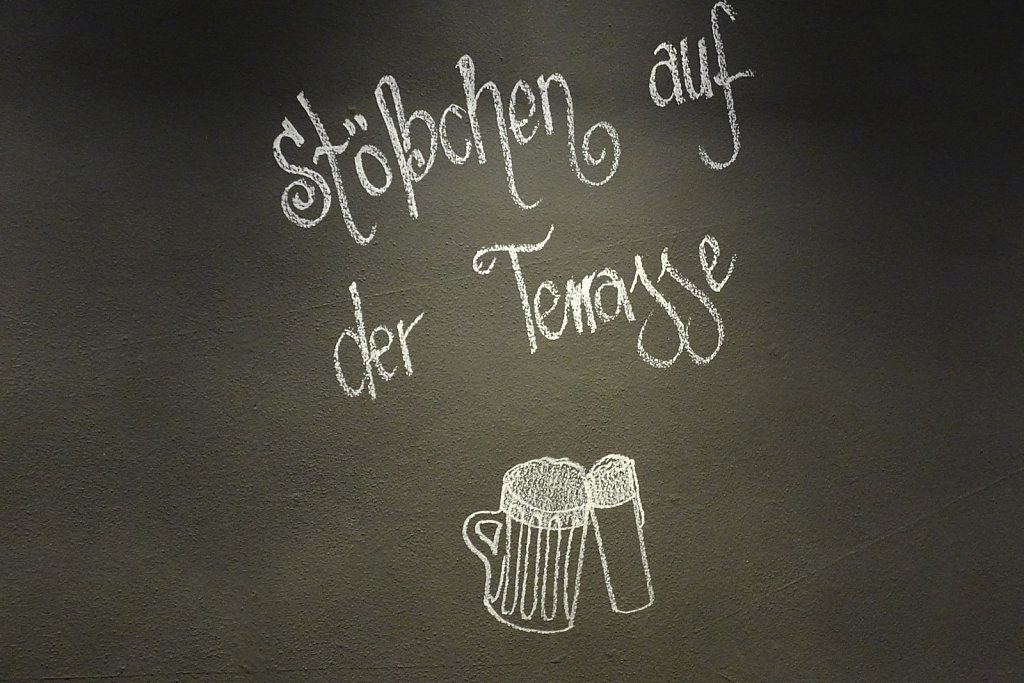 Stößchen auf
der Terrasse